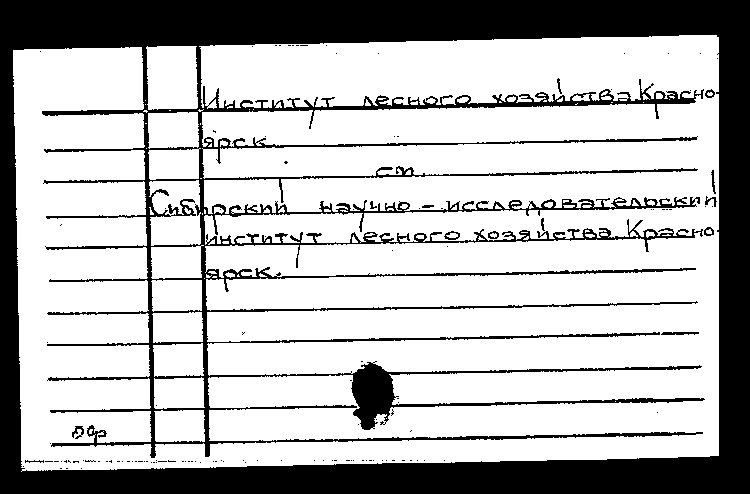 Институт лесного хозяйства. Красно-
ярск.
см.
Сибирский научно-исследовательский
институт лесного хозяйства. Красно-
ярск.